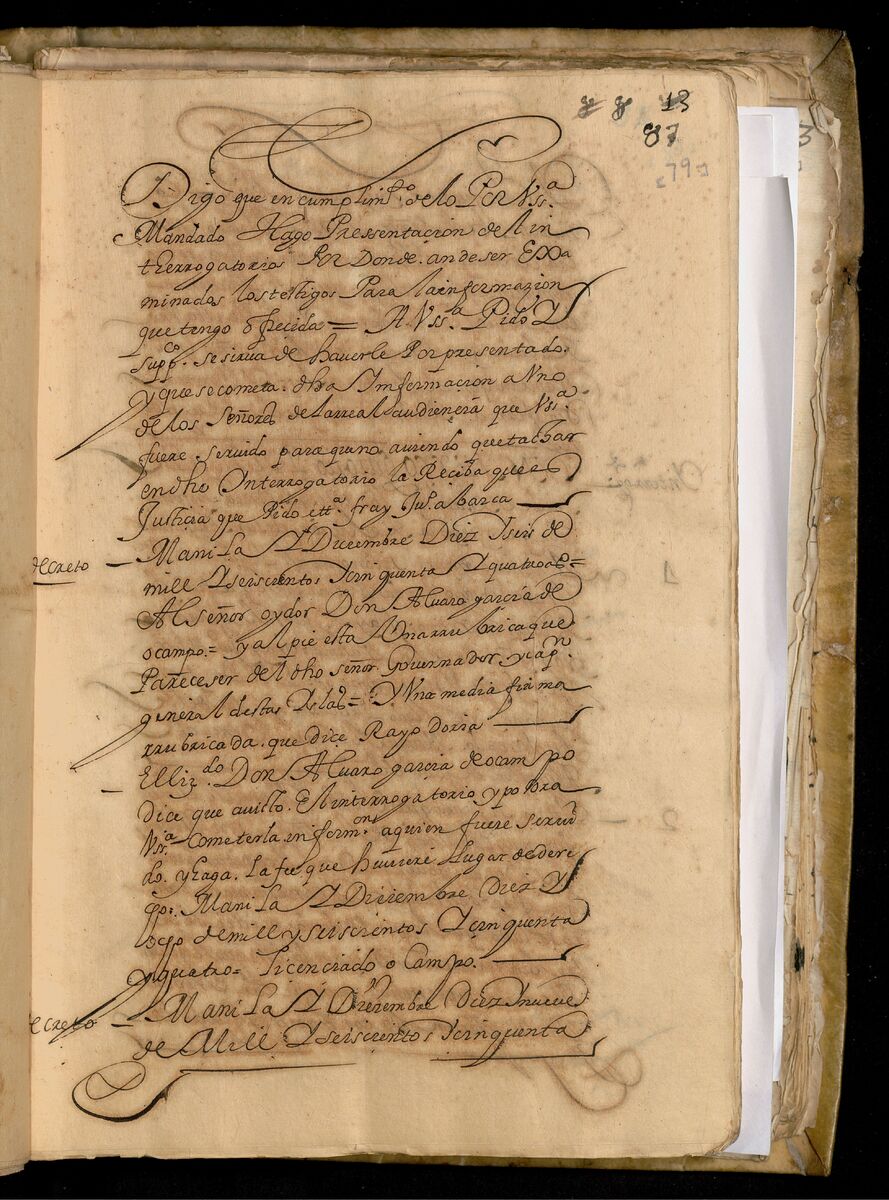 8 8 13
87
79
Digo que en cumplimto. de lo Por Vssa.
Mandado Hago Pressentacion del in
therrogatorio Por Donde an de ser Exa
minados los testigos Para la informazion
que tengo ofrecida = A Vssa. Pido Y
suppco. se sirva de haverle Por presentado.
y que se cometa. dha Informacion a Vno
de los Señores de la rreal audiencia que Vssa.
fuere servido para que no aviendo que tachar
en dho Interrogatorio la Reciba que es
Justicia que Pido etta. fray Jul. abarca
decreto – Manila Y Diciembre Diez Y seis de
mill Y seiscientos Y cinquenta Y quatro as =
Al señor oydor Don Alvaro garcia de
ocampo = y al pie esta Vna rrubrica que
Parece ser del dho señor Governador y capn.
general destas Yslas = Y Vna media firma
rrubricada. que dice Rayo doria
El lizdo. Don Alvaro garcia de ocampo
dice que a visto. El interrogatorio y podra
Vssa. cometer la informon. a quien fuere servi
do. y haga. la fee que huviere Lugar de dere
cho. Manila Y Diciembre Diez Y
ocho de mill y seiscientos Y cinquenta
y quatro = Licenciado o Campo.
decreto – Manila Y Diciembre Diez Y nueve
de Mill Y seiscientos Y cinquenta